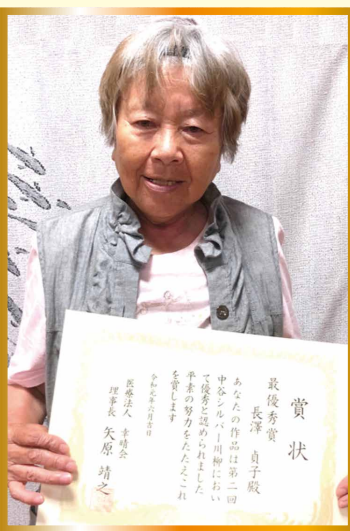 賞状
最優秀賞
長澤 貞子殿
あなたの作品は第二回
中谷シルバー川柳におい
て優秀と認められました
平素の努力をたたえこれ
を賞します
令和元年六月吉日
医療法人 幸靖会
理事長 矢原 靖之